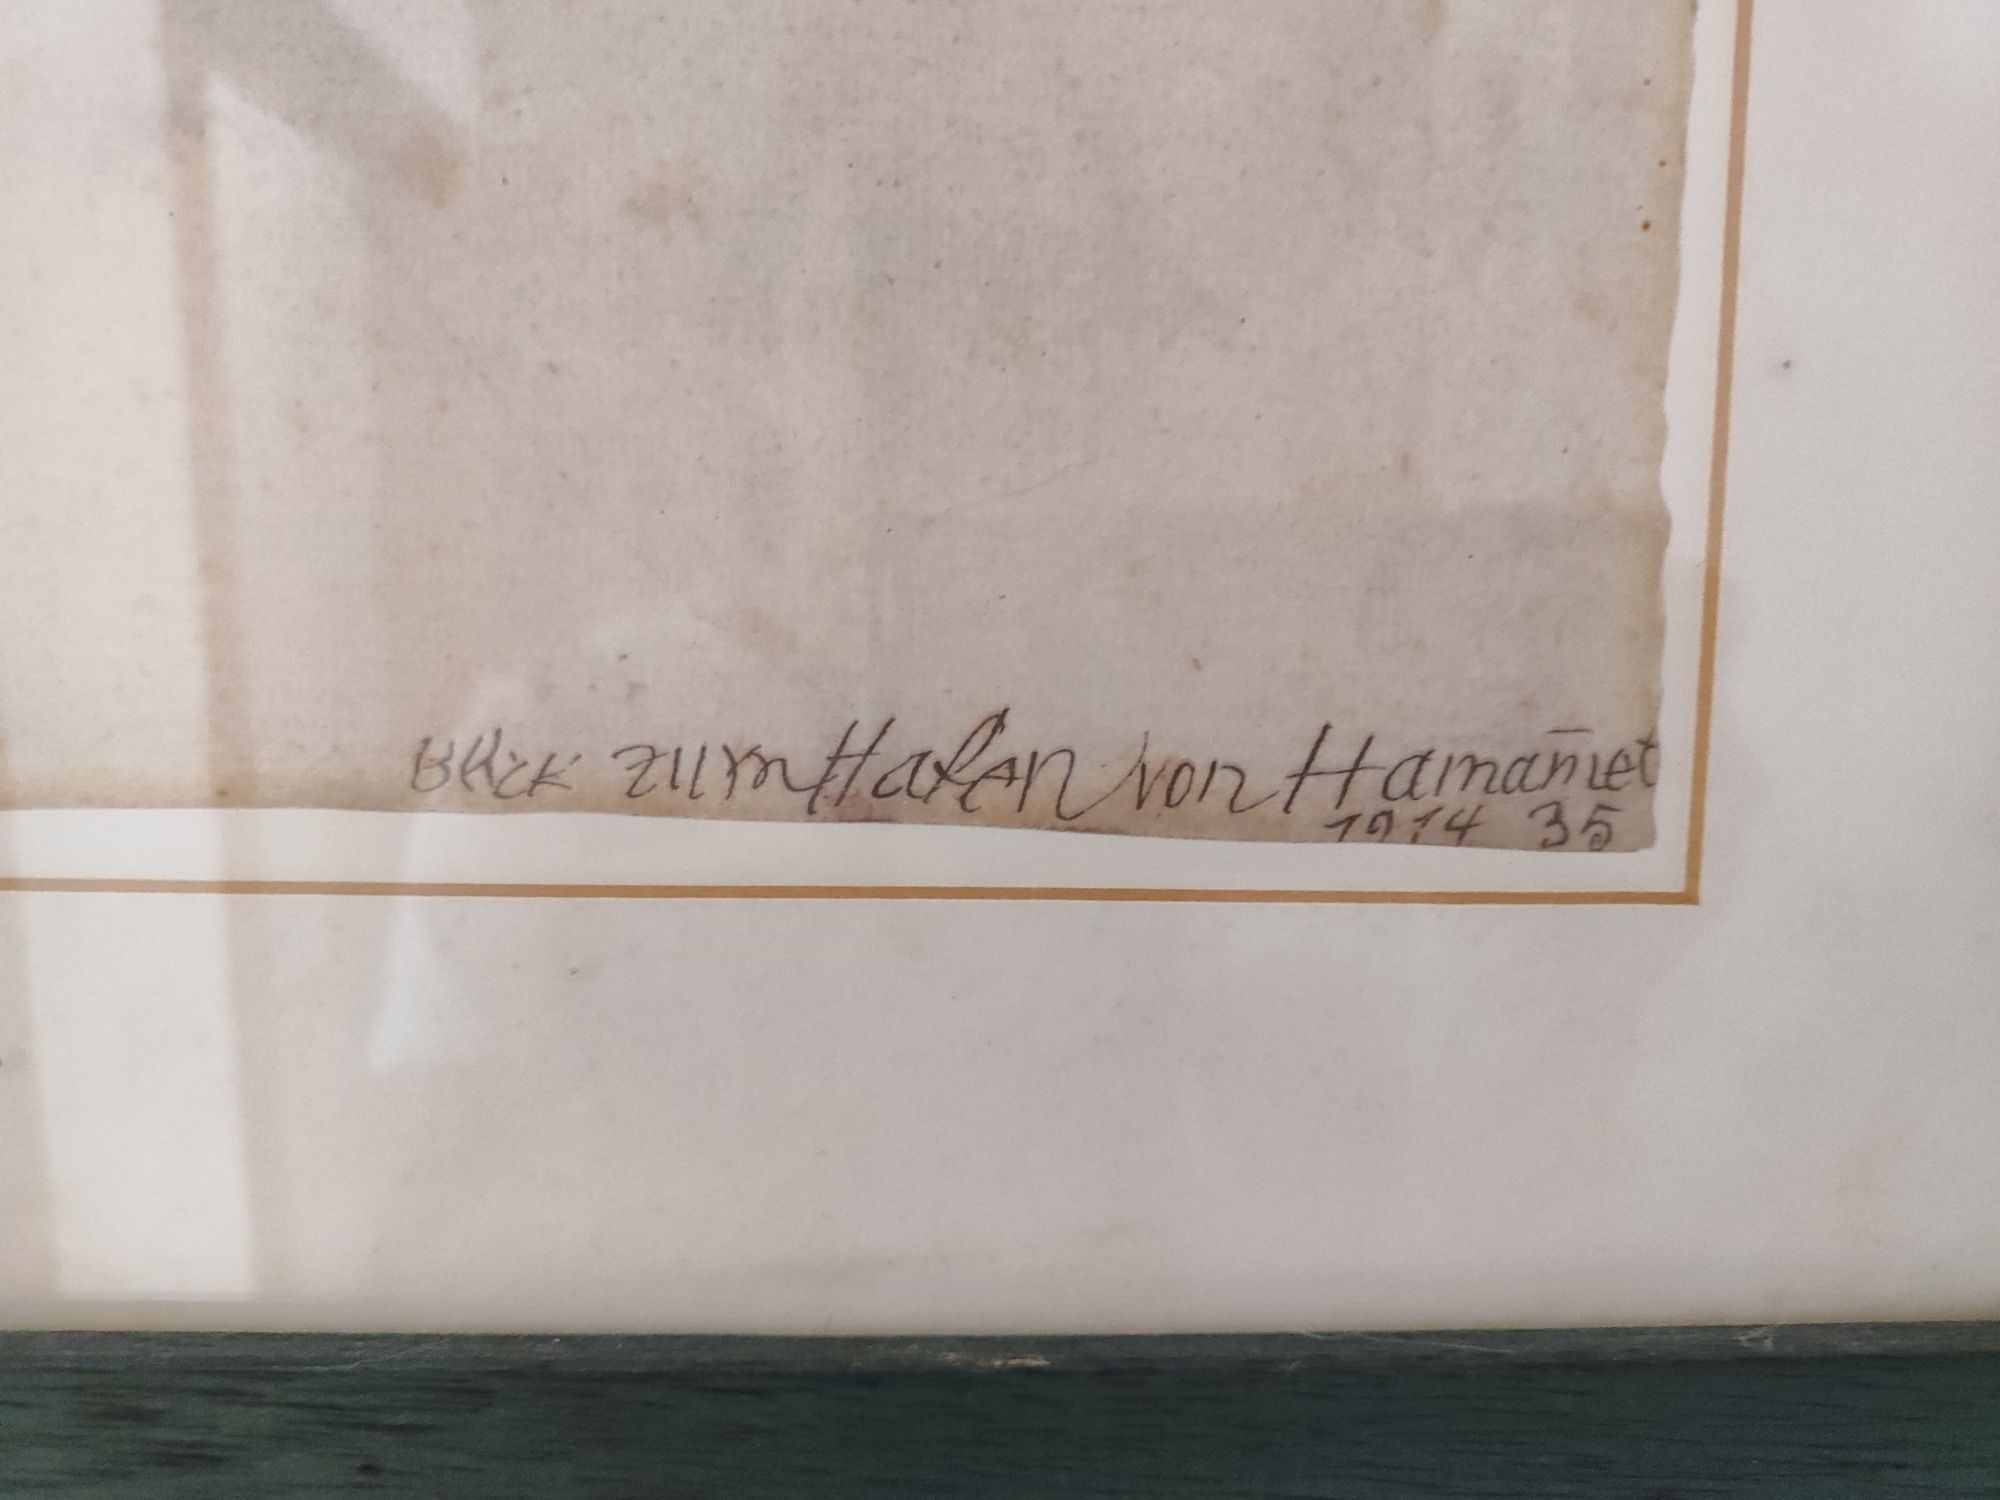 Blick zum Hafen von Hamam̄et
1914 35